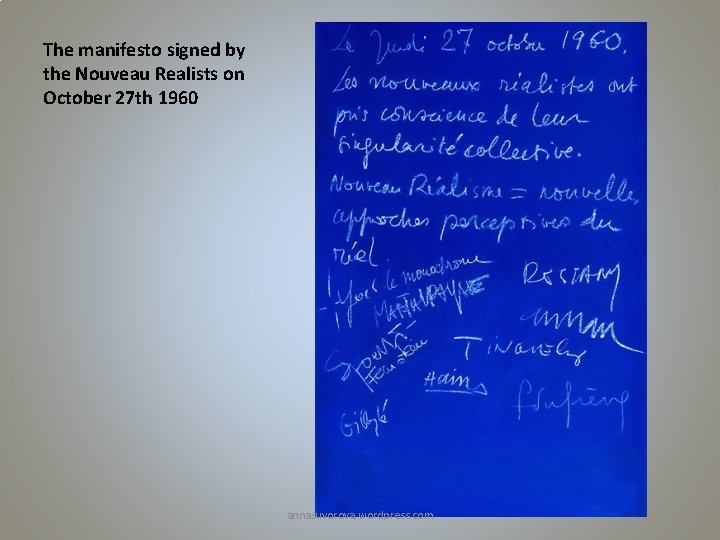 The manifesto signed by
the Nouveau Realists on
October 27 th 1960
Le Jeudi 27 octobre 1960.
Les nouveaux réalistes ont
pris conscience de leur
singularité collective.
Nouveau Réalisme = nouvelles
approches perceptives du
réel
Yves le monochrome
RESTANY
Spoerri
Tinguely
Hains
annasuvorova.wordpress.com